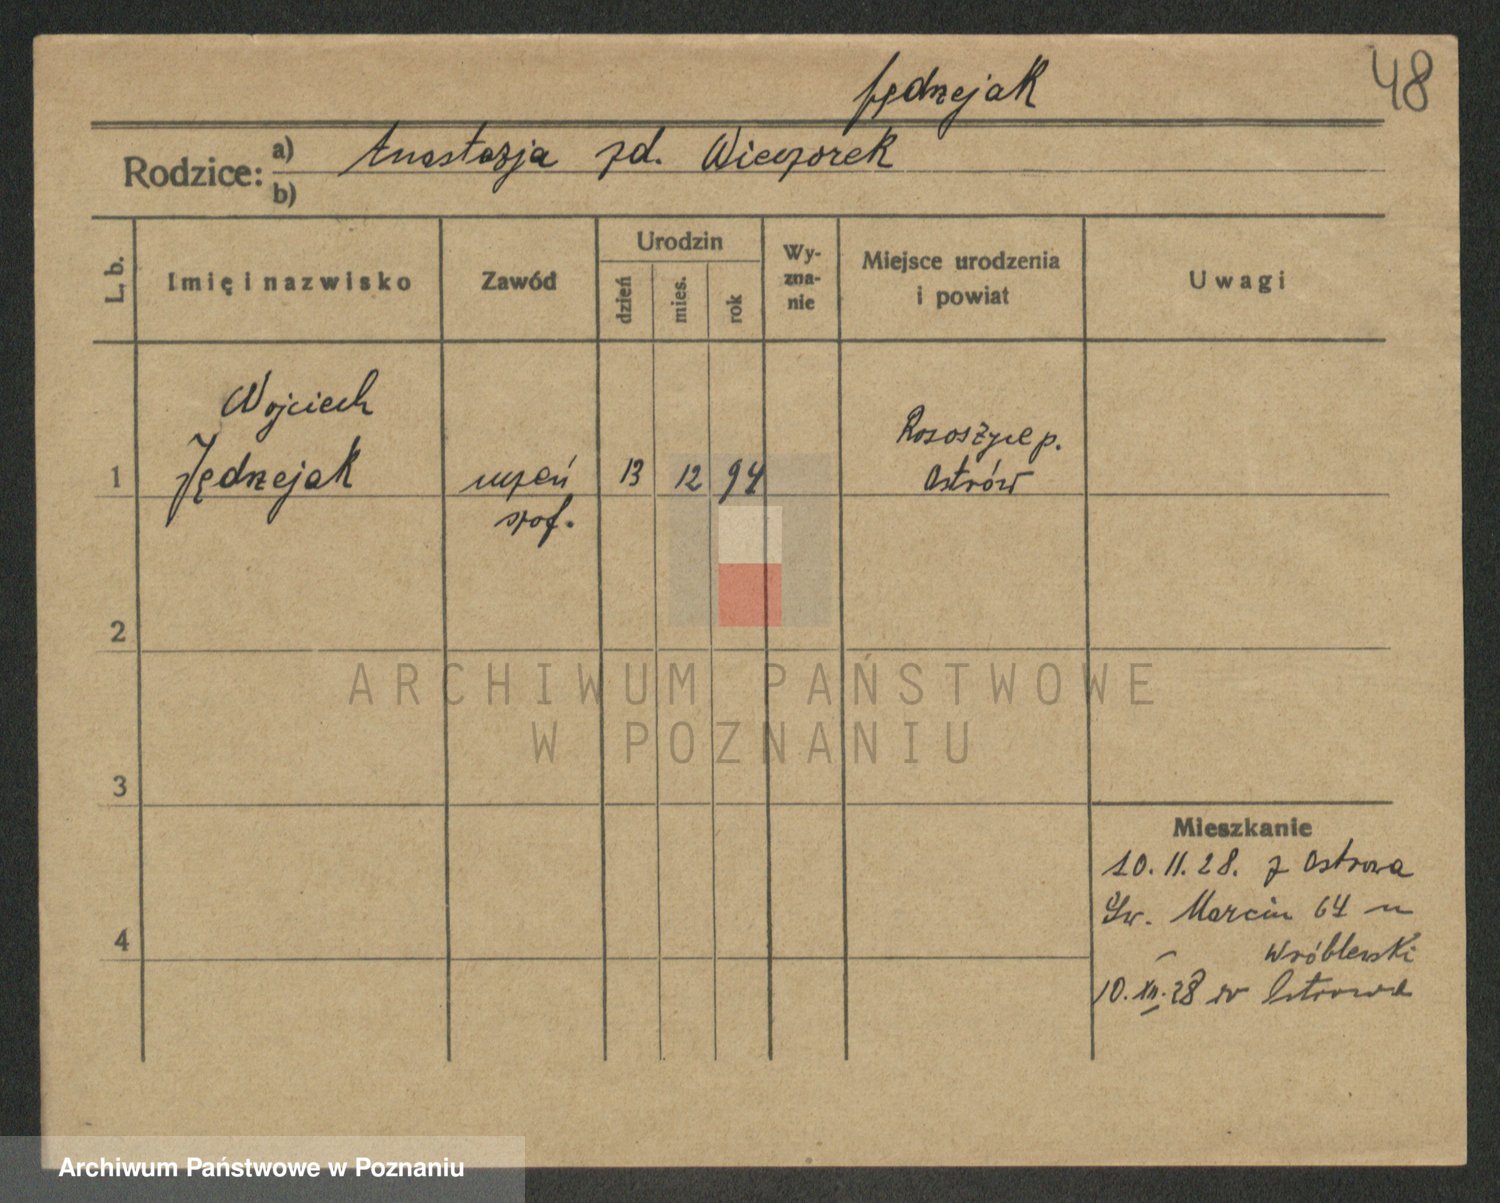 48
Jędrzejak
Rodzice: a) Anastazja zd. Wieczorek
b)
L. b.
Imię i nazwisko
Zawód
Urodzin
dzień
mies.
rok
Wy-
zna-
nie
Miejsce urodzenia
i powiat
Uwagi
Wojciech
1 Jędrzejak uczeń 13 12 94
szof.
Rososzyce p.
Ostrów
2
3
4
Mieszkanie
10. 11. 28. z Ostrowa
Św. Marcin 64 u
Wróblewski
10. XII. 28 w Ostrowa
ARCHIWUM PAŃSTWOWE
W POZNANIU
Archiwum Państwowe w Poznaniu